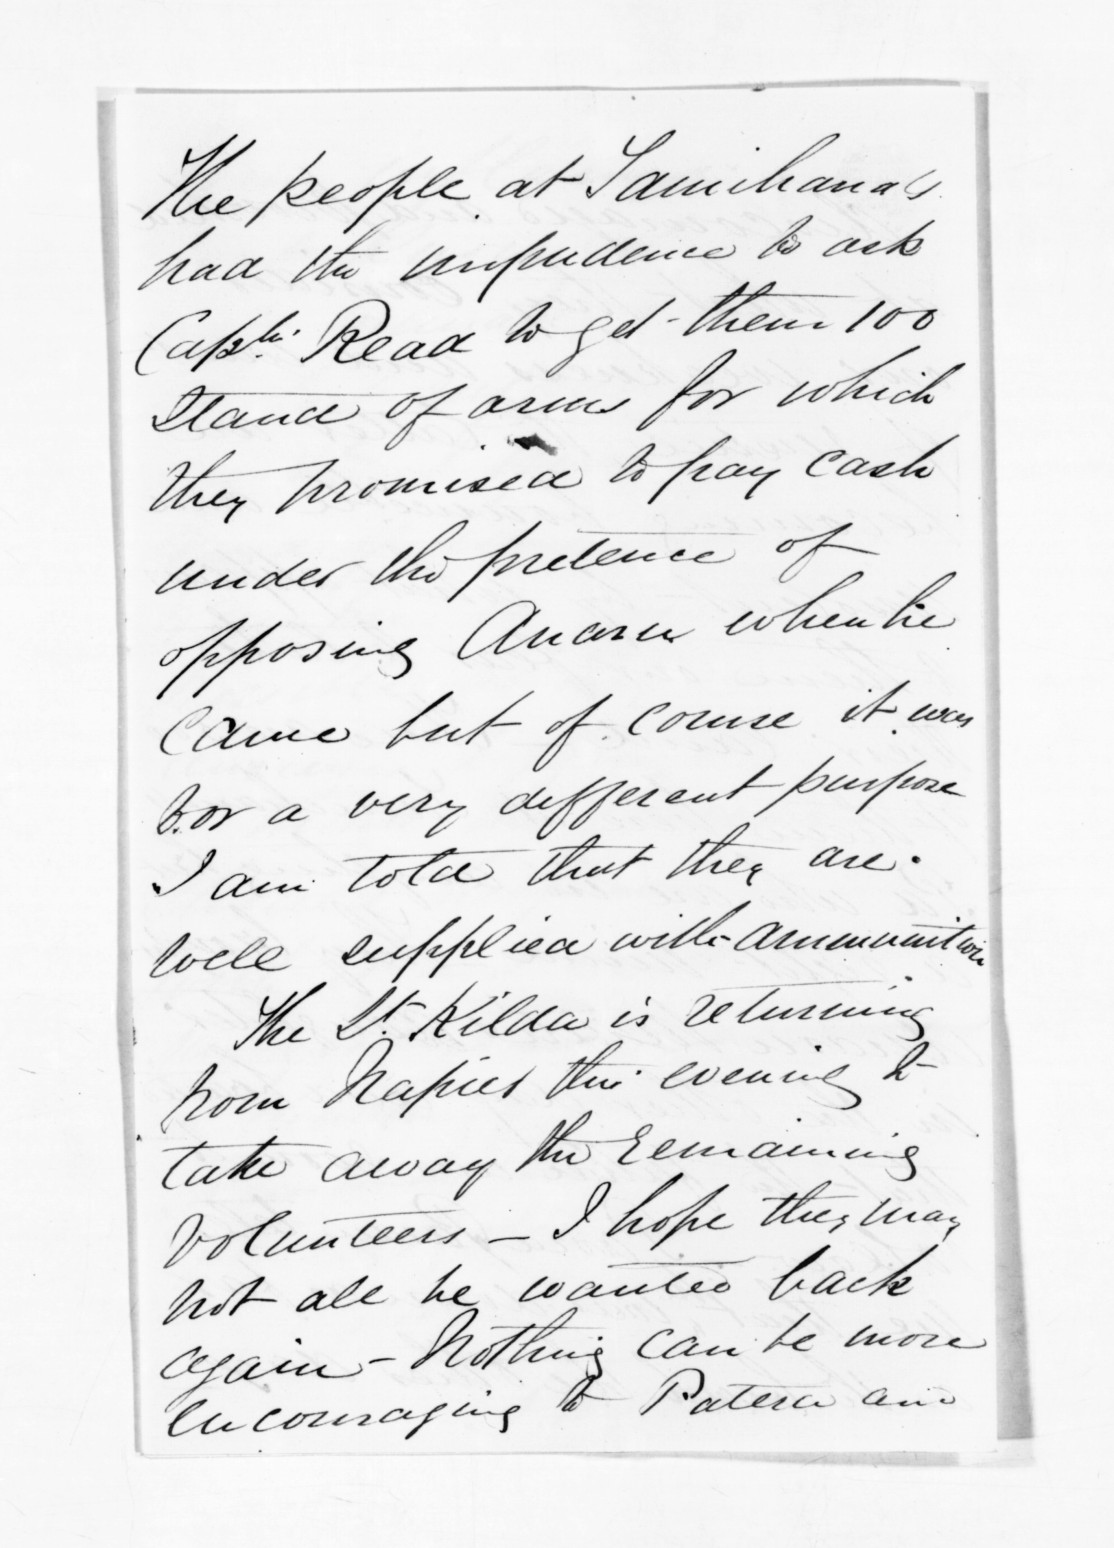 The people at Tamihana's
had the impudence to ask
Captn. Read to get them 100
stand of arms for which
they promised to pay cash
under the pretence of
opposing Anaru when he
came but of course it was
for a very different purpose
I am told that they are
well supplied with ammunition
The St. Kilda is returning
from Napier this evening to
take away the remaining
volunteers _ I hope they may
not all be wanted back
again - Nothing can be more
encouraging to Patera and